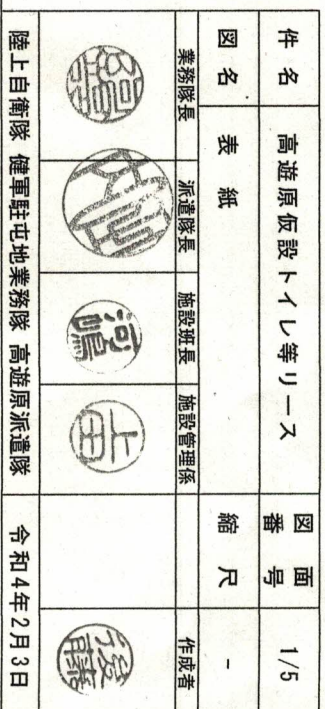 件名 高遊原仮設トイレ等リース 図面番号 1/5
図名 表紙 縮尺 -
業務隊長 派遣隊長 施設班長 施設管理係 作成者
河嶋 上田 後藤
陸上自衛隊 健軍駐屯地業務隊 高遊原派遣隊 令和4年2月3日